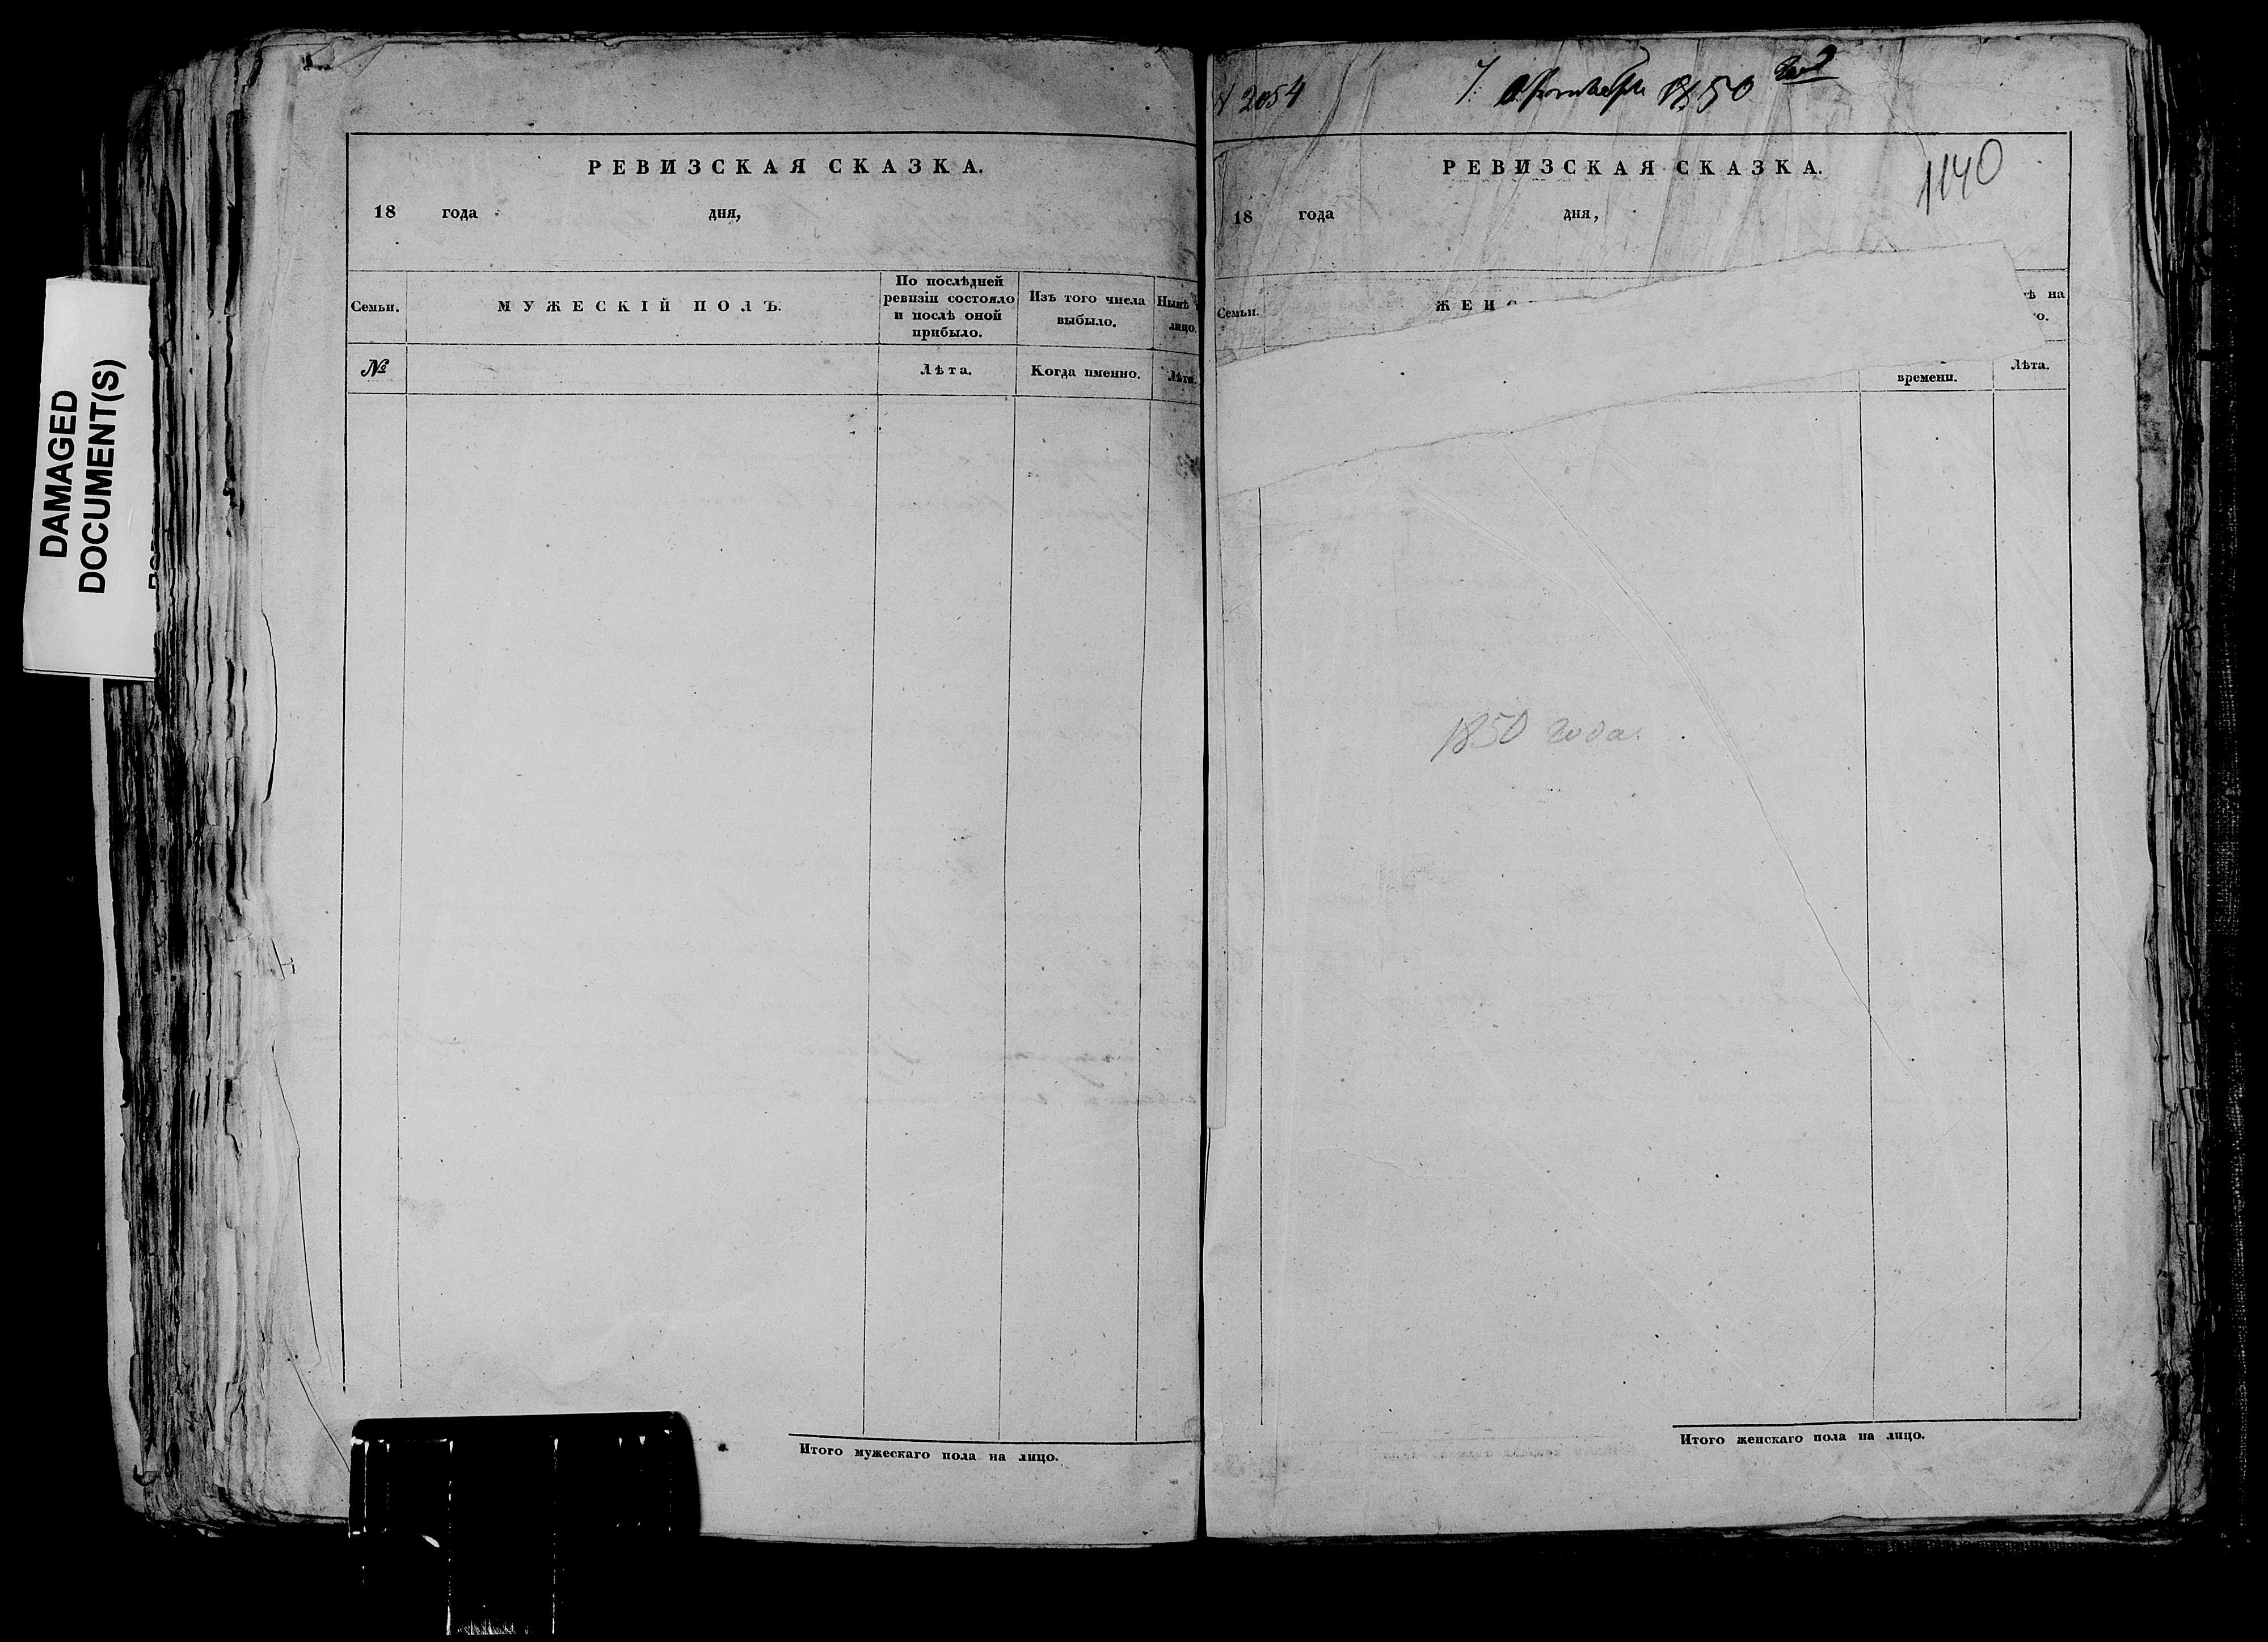 DAMAGED
DOCUMENT(S)
РЕВИЗСКАЯ СКАЗКА.
18 года дня,
Семьи.
МУЖЕСКІЙ ПОЛЪ.
По послѣдней
ревизіи состояло
и послѣ оной
прибыло.
Изъ того числа
выбыло.
Нынѣ
лицо.
№
Лѣта.
Когда именно.
Лѣта.
Итого мужескаго пола на лицо.
2054
1850
1140
РЕВИЗСКАЯ СКАЗКА.
18 года дня,
Семьи.
ЖЕН
ѣ на
о.
времени.
Лѣта.
1850 года.
Итого женскаго пола на лицо.